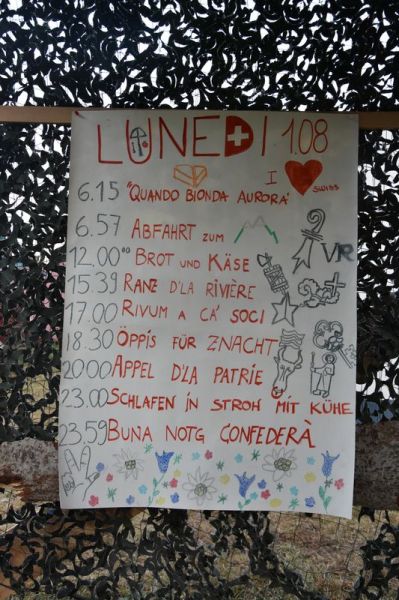 LUNEDI 1.08
I
SWISS
6.15 "QUANDO BIONDA AURORA"
6.57 ABFAHRT ZUM
12.00°° BROT UND KÄSE
15.39 RANZ D'LA RIVIÈRE
17.00 RIVUM A CA' SOCI
18.30 ÖPPIS FÜR ZNACHT
20.00 APPEL D'LA PATRIE
23.00 SCHLAFEN IN STROH MIT KÜHE
23.59 BUNA NOTG CONFEDERÀ